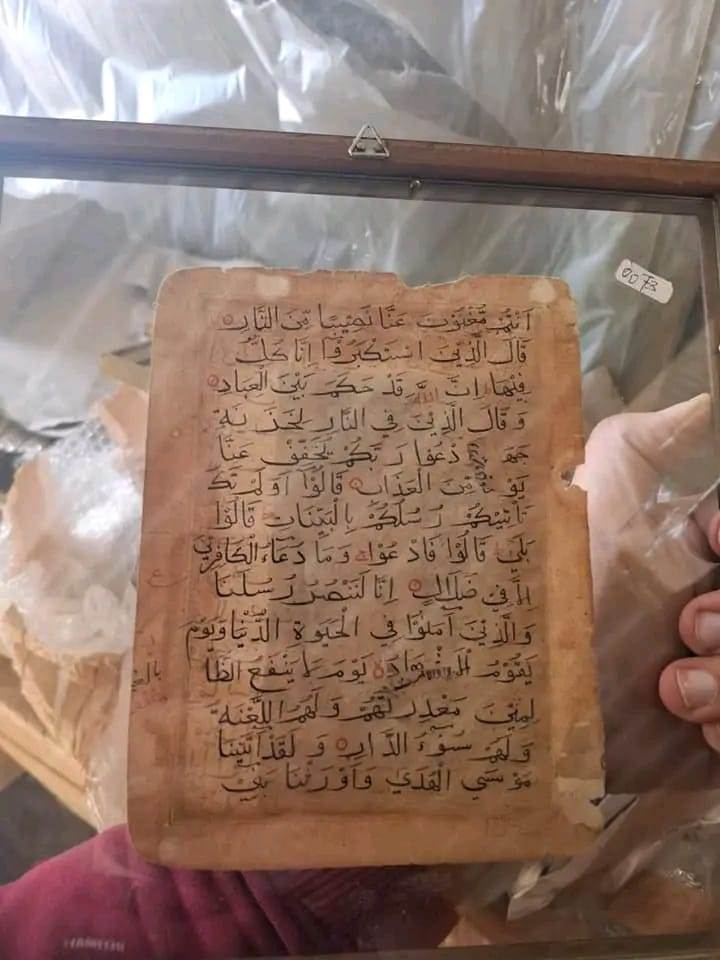 اَنْتُمْ مُّغْنُونَ عَنَّا نَصِيْبًا مِّنَ النَّارِ
قَالَ الَّذِيْنَ اسْتَكْبَرُوْا اِنَّا كُلٌّ
فِيْهَا اِنَّ اللّٰهَ قَدْ حَكَمَ بَيْنَ الْعِبَادِ
وَ قَالَ الَّذِيْنَ فِي النَّارِ لِخَزَنَةِ
ادْعُوْا رَبَّكُمْ يُخَفِّفْ عَنَّا
مِّنَ الْعَذَابِ قَالُوْا اَوَلَمْ تَكُ
تَأْتِيْكُمْ رُسُلُكُمْ بِالْبَيِّنَاتِ قَالُوْا
بَلَى قَالُوْا فَادْعُوْا وَمَا دُعَاءُ الْكَافِرِيْنَ
اِلَّا فِي ضَلَالٍ اِنَّا لَنَنْصُرُ رُسُلَنَا
وَالَّذِيْنَ اٰمَنُوْا فِي الْحَيَوةِ الدُّنْيَا وَيَوْمَ
يَقُوْمُ الْاَشْهَادُ يَوْمَ لَا يَنْفَعُ الظَّا
لِمِيْنَ مَعْذِرَتُهُمْ وَلَهُمُ اللَّعْنَةُ
وَلَهُمْ سُوْءُ الدَّارِ وَلَقَدْ اٰتَيْنَا
مُوْسَى الْهُدَى وَاَوْرَثْنَا بَنِيْ